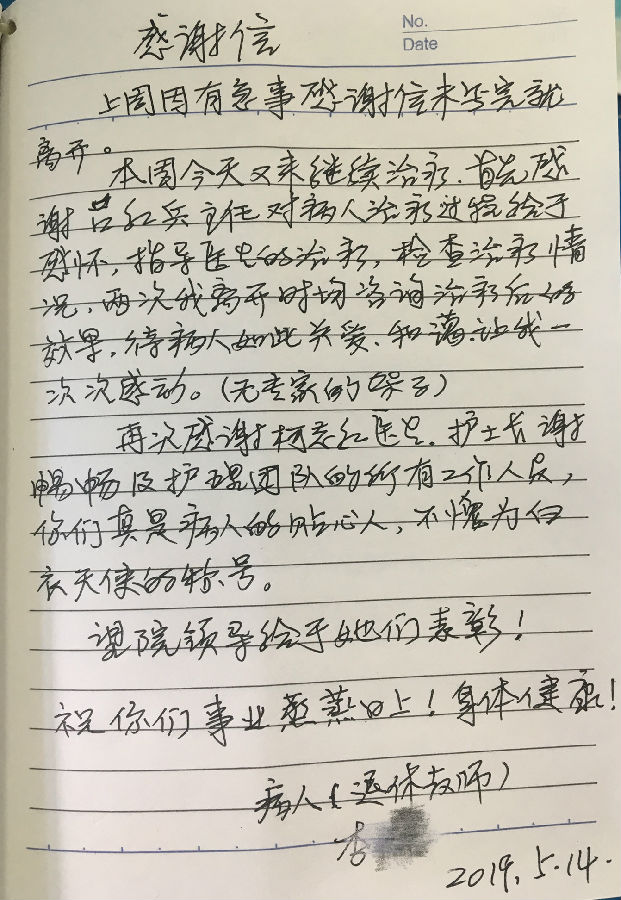 感谢信
No.
Date
上周因有急事感谢信未写完就
离开。
本周今天又来继续治疗.首先感
谢吕红兵主任对病人治疗过程给于
感怀,指导医生的治疗,检查治疗情
况,两次我离开时均咨询治疗后的
效果,待病人如此关爱.和蔼.让我一
次次感动。(无专家的架子)
再次感谢柯志红医生.护士长谢
畅畅及护理团队的所有工作人员,
你们真是病人的贴心人,不愧为白
衣天使的称号。
望院领导给于她们表彰!
祝你们事业蒸蒸日上!身体健康!
病人(退休教师)
2019.5.14.